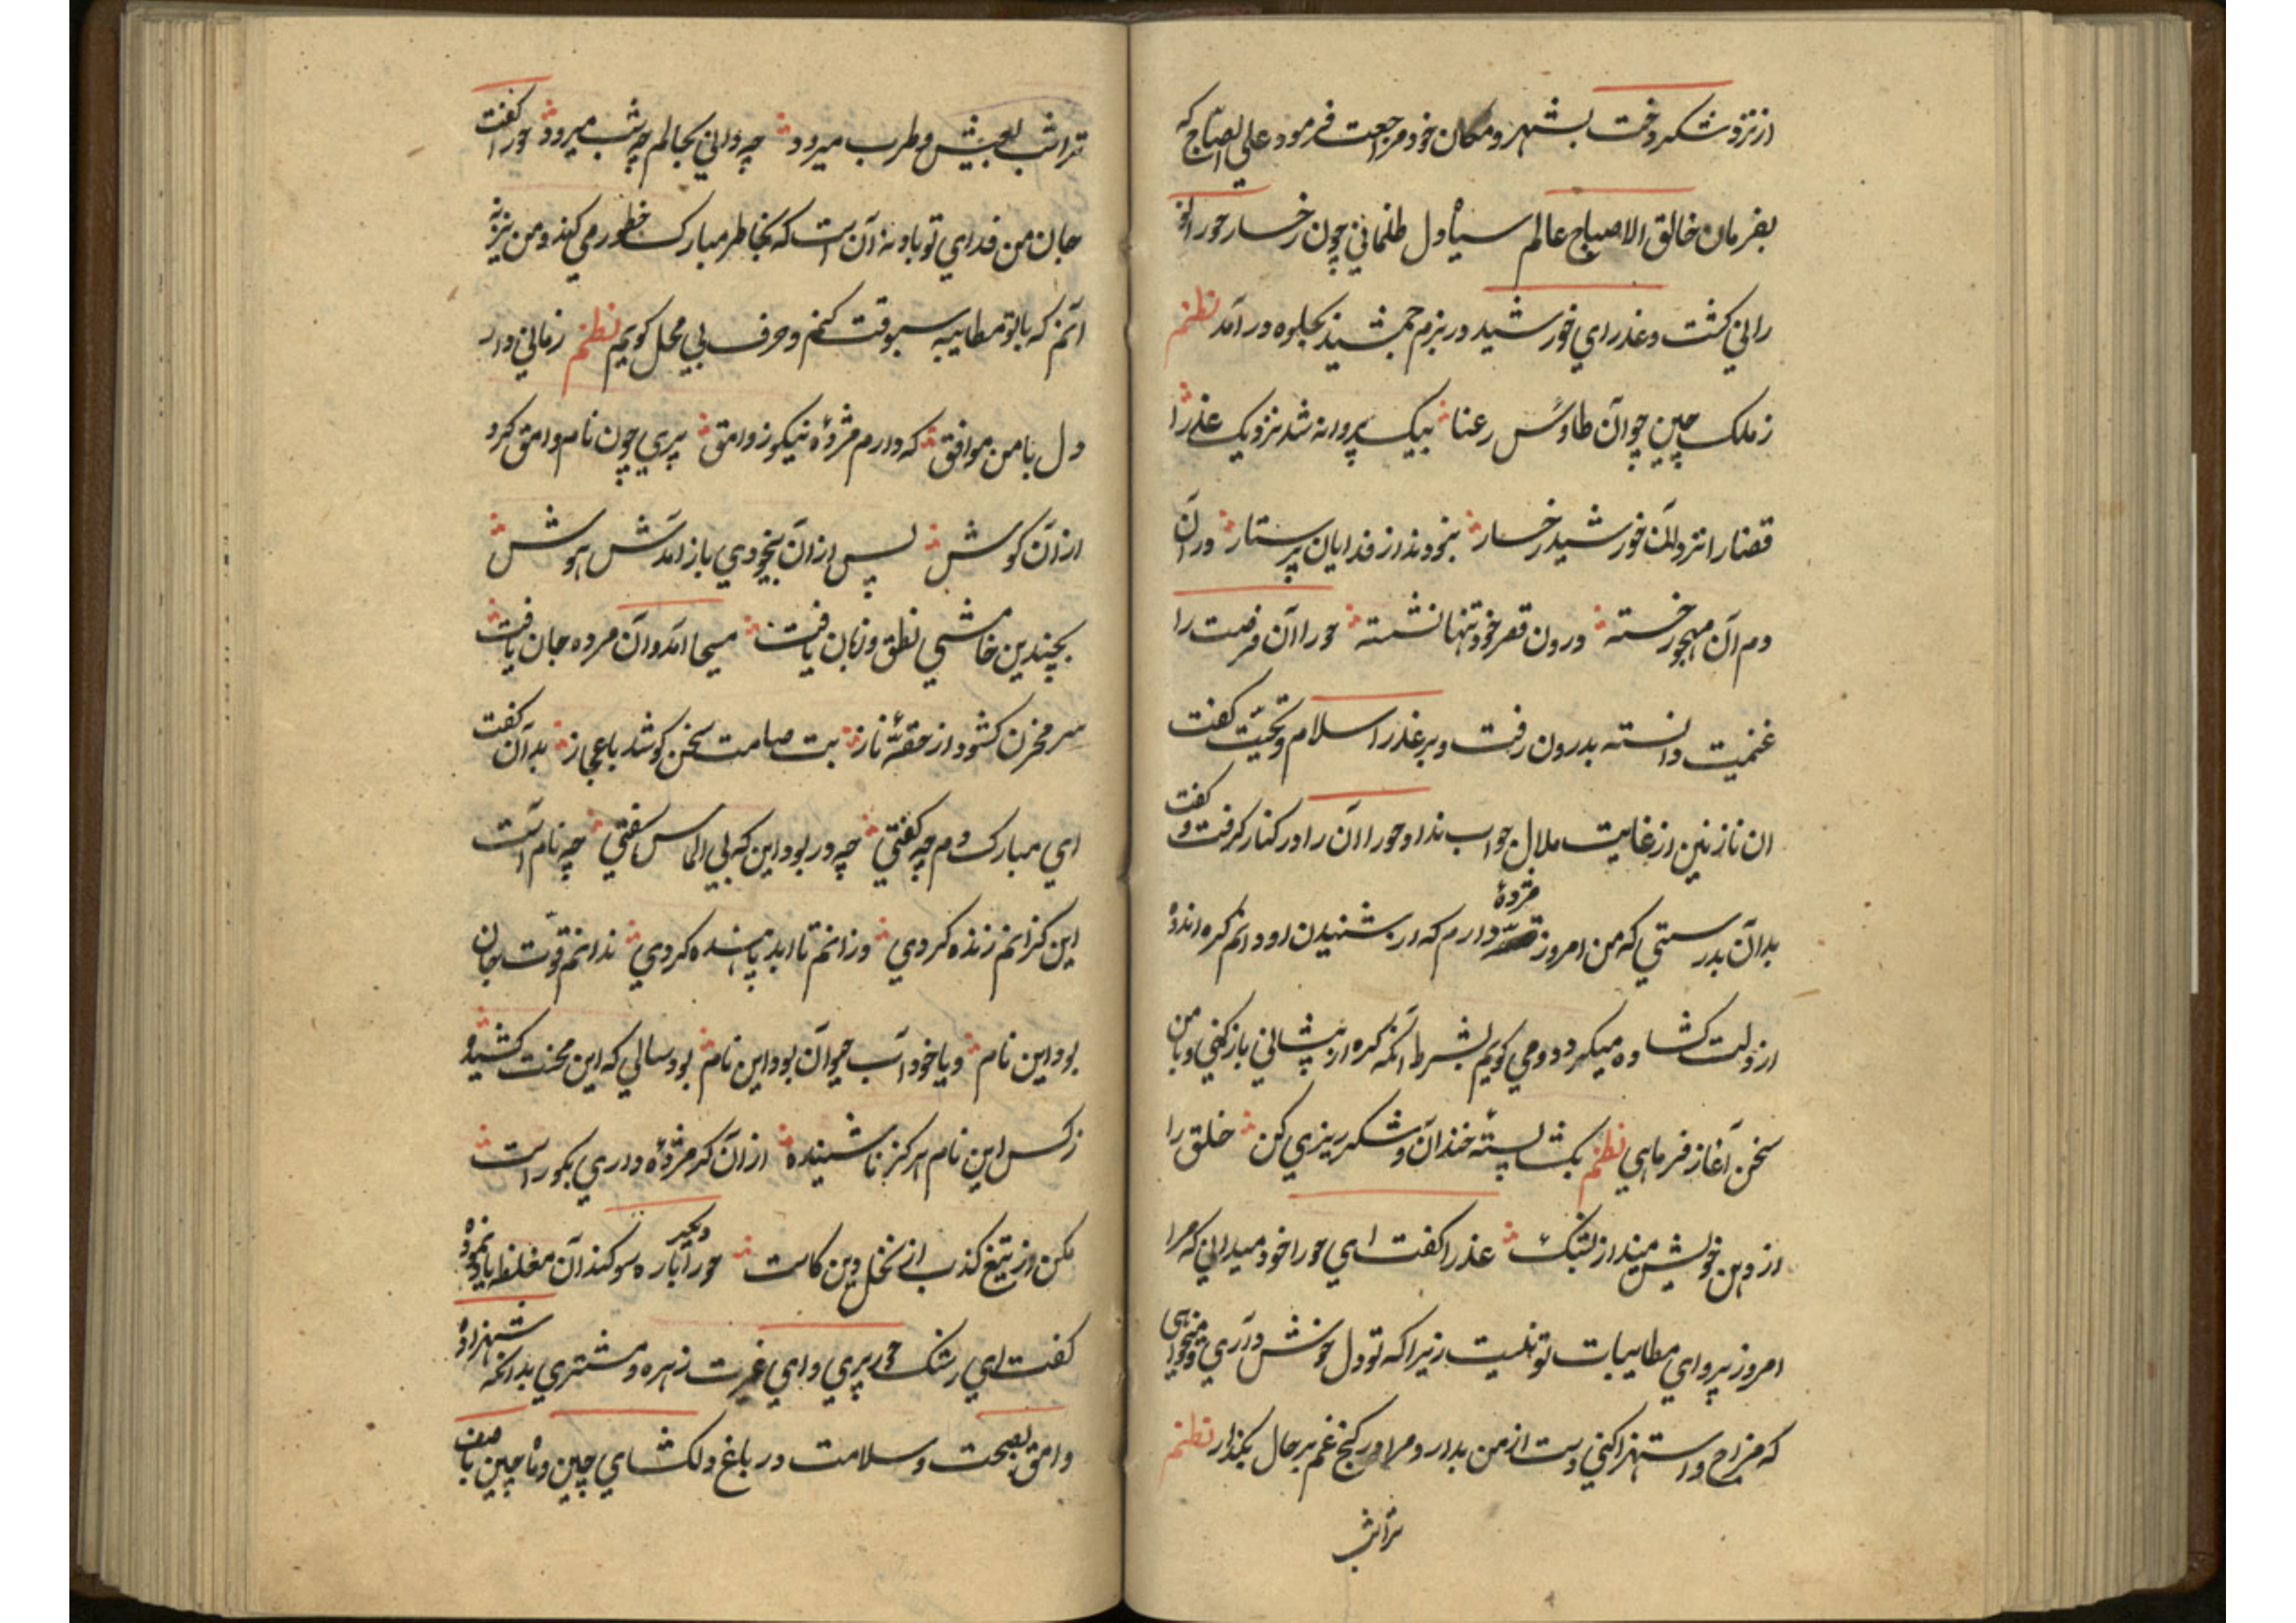 از نزد شکر دخت بشهر و مکان خود مراجعت فرمود علی الصباح که
بفرمان خالق الاصباح عالم سیاه دل ظلمانی چون رخسار حورا نو
رانی کشت و عذرای خورشید در بزم جمشید بجلوه در آمد نظم
ز ملک چین چو آن طاوس رعنا بیک پروانه شد نزدیک عذرا
قضا را نزد آن خورشید رخسار نبودند از فدایان پرستار در آن
دم آن مهجور خسته درون قصر خود تنها نشسته حورا آن فرصت را
غنمیت دانسته بدرون رفت و بر عذرا سلام و تحیت کفت
ان نازنین از غایت ملال جواب نداد حورا آن را در کنار کرفت و کفت
بدآن بدرستی که من امروز مژدهٔ دارم که از شنیدن او دانم کره اندوه
از دلت کشاده میکردد و می کویم بشرط آنکه کره از پیشانی باز کنی و با من
سخن آغاز فرمایی نظم بکشا پستهٔ خندان و شکر ریزی کن خلق را
از دهن خویش مینداز بشک عذرا کفت ای حورا خود میدانی که مرا
امروز پروای مطایبات تو نیست زیرا که تو دل خوش داری و میخواهی
که مزاح و استهزا کنی دست از من بدار و مرا در کنج غم بر حال بکذار نظم
ترا شب
ترا شب بعیش و طرب میرود چه دانی بحالم چه شب میرود حورا کفت
جان من فدای تو باد نه آن است که بخاطر مبارک خطور می کند و من نیز نه
آنم که با تو مطایبه بسبوقت کنم و حرف بی محل کویم نظم زمانی دار
دل با من موافق که دارم مژدهٔ نیکو ز وامق پری چون نام وامق کرد
از آن کوش پس از آن بیخودی باز آمدش هوش
بچندین خامشی نطق و زبان یافت مسیحا آمد و آن مرده جان یافت
سر مخزن کشود از حقهٔ ناز بت صامت سخن کو شد باعجاز بدآن کفت
ای مبارک دم چه کفتی چه در بود این که بی الماس سفتی چه نام است
این کز انم زنده کردی وز انم تا ابد پاینده کردی ندانم قوت جان
بود این نام و یا خود آب حیوان بود این نام بود سالی که این محنت کشیده
ز کس این نام هرکز ناشنیده از آن کر مژدهٔ داری بکو راست
مکن از تیغ کذب از نخل دین کاست حورا دیکر باره سوکند آن مغلظ یاد نموده
کفت ای رشک حور پری و ای غیرت زهره و مشتری بدانکه شهزاده
وامق بصحت و سلامت در باغ دلکشای چین و ماچین با صف